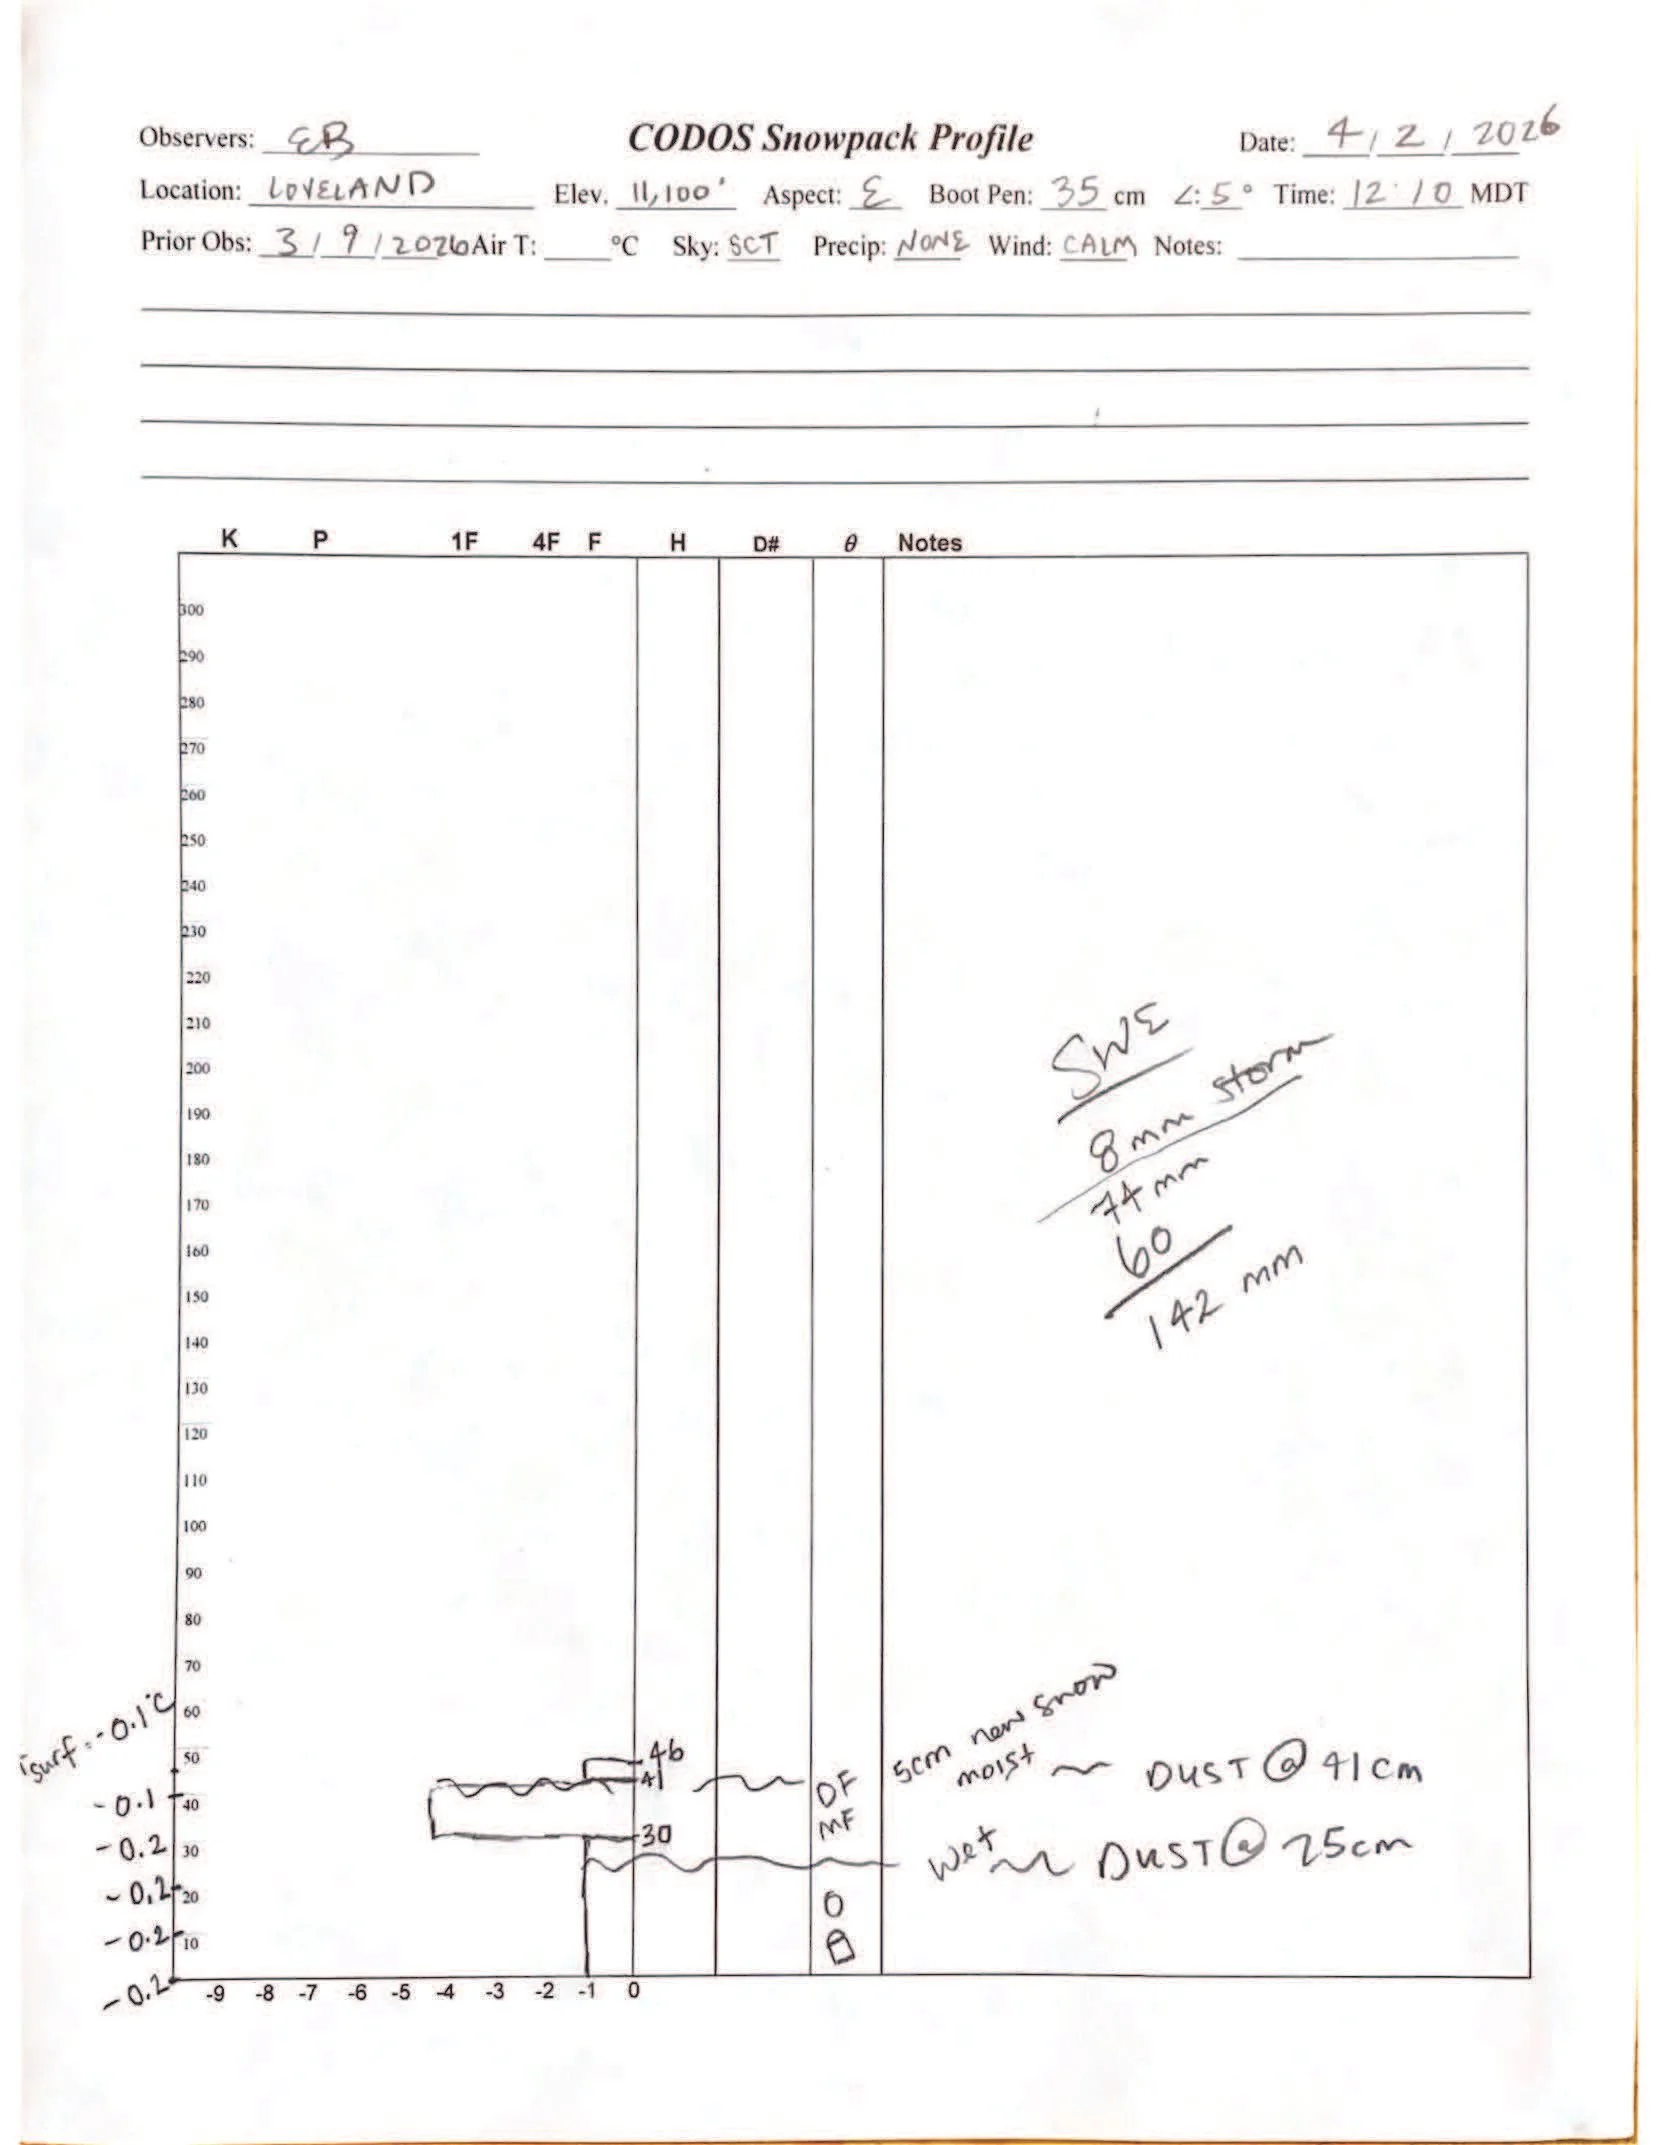 Observers: EB CODOS Snowpack Profile Date: 4/2/2026
Location: LOVELAND Elev. 11,100' Aspect: E Boot Pen: 35 cm ∠: 5° Time: 12:10 MDT
Prior Obs: 3/9/2026 Air T: ____°C Sky: SCT Precip: NONE Wind: CALM Notes:
K P 1F 4F F H D# θ Notes
300
290
280
270
260
250
240
230
220
210
200
190
180
170
160
150
140
130
120
110
100
90
80
70
60
50
40
30
20
10
SWE
8 mm storm
74 mm
60
142 mm
Tsurf = -0.1°C
-0.1
-0.2
-0.2
-0.2
-0.2
46
41
30
DF
MF
5cm new snow
moist ~ DUST @ 41cm
wet ~ DUST @ 25cm
-9 -8 -7 -6 -5 -4 -3 -2 -1 0